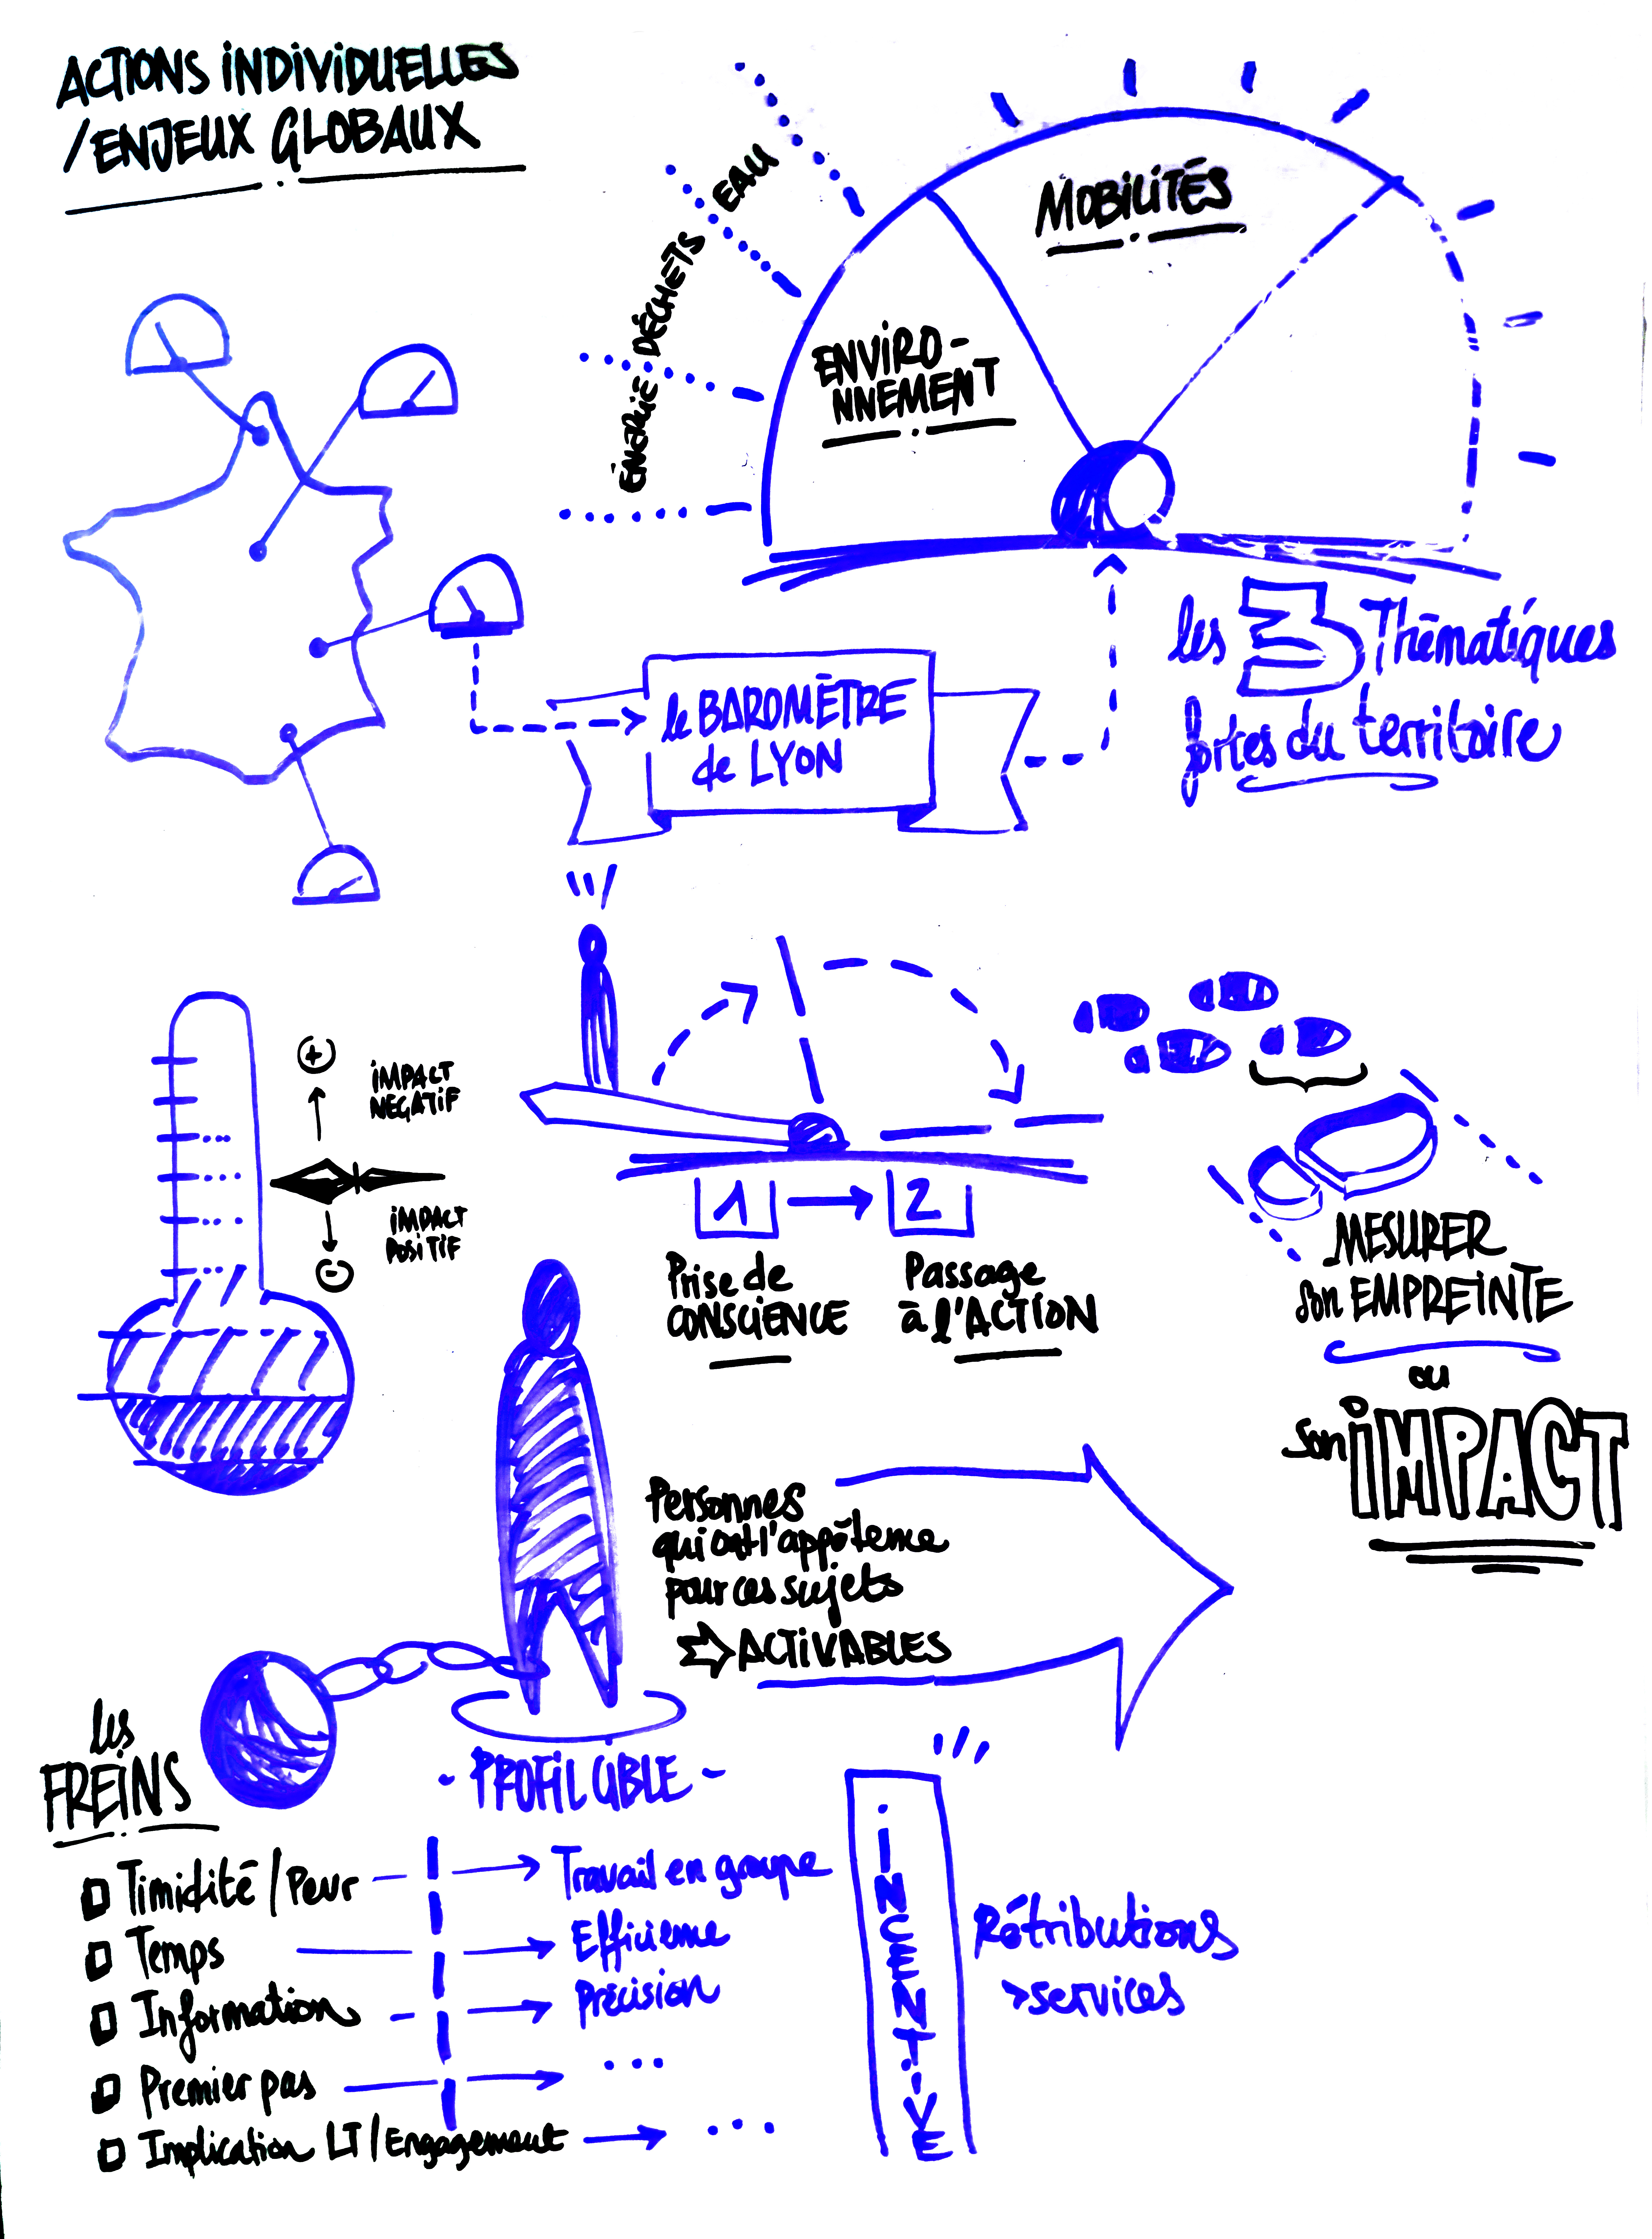 ACTIONS INDIVIDUELLES
/ENJEUX GLOBAUX
EAU
DÉCHETS
ÉNERGIE
MOBILITÉS
ENVIRO-
NNEMENT
le BAROMÈTRE
de LYON
les 3 Thématiques
fortes du territoire
+
IMPACT
NEGATIF
IMPACT
POSITIF
-
1 → 2
Prise de
CONSCIENCE
Passage
à l'ACTION
MESURER
son EMPREINTE
ou
son IMPACT
Personnes
qui ont l'appétence
pour ces sujets
⇒ ACTIVABLES
- PROFIL CIBLE -
les
FREINS
Timidité / Peur → Travail en groupe
Temps → Efficience
Information → Précision
Premier pas → ...
Implication LT / Engagement → ...
INCENTIVE
Rétributions
>services